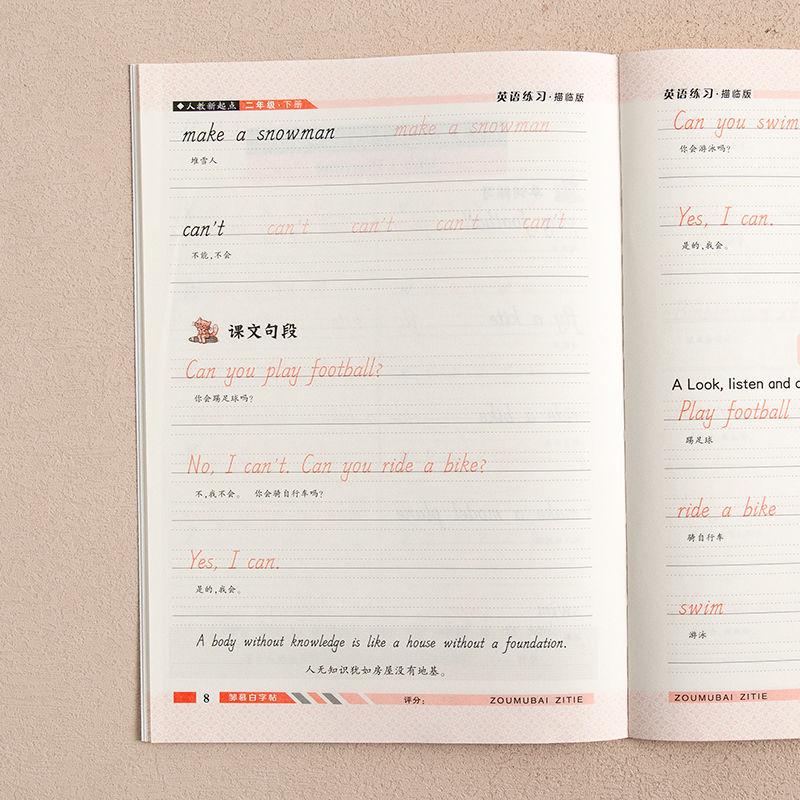 ◆人教新起点 二年级·下册 英语练习·描临版
make a snowman make a snowman
堆雪人
can't can't can't can't can't
不能,不会
课文句段
Can you play football?
你会踢足球吗?
No, I can't. Can you ride a bike?
不,我不会。 你会骑自行车吗?
Yes, I can.
是的,我会。
A body without knowledge is like a house without a foundation.
人无知识犹如房屋没有地基。
8 邹慕白字帖 评分: ZOUMUBAI ZITIE
英语练习·描临版
Can you swim
你会游泳吗?
Yes, I can.
是的,我会。
A Look, listen and
Play football
踢足球
ride a bike
骑自行车
swim
游泳
ZOUMUBAI ZITIE